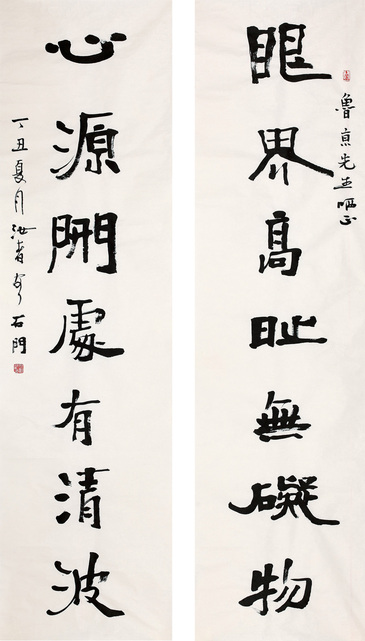 魯京先生哂正
眼界高時無礙物
心源開處有清波
丁丑夏月 石門